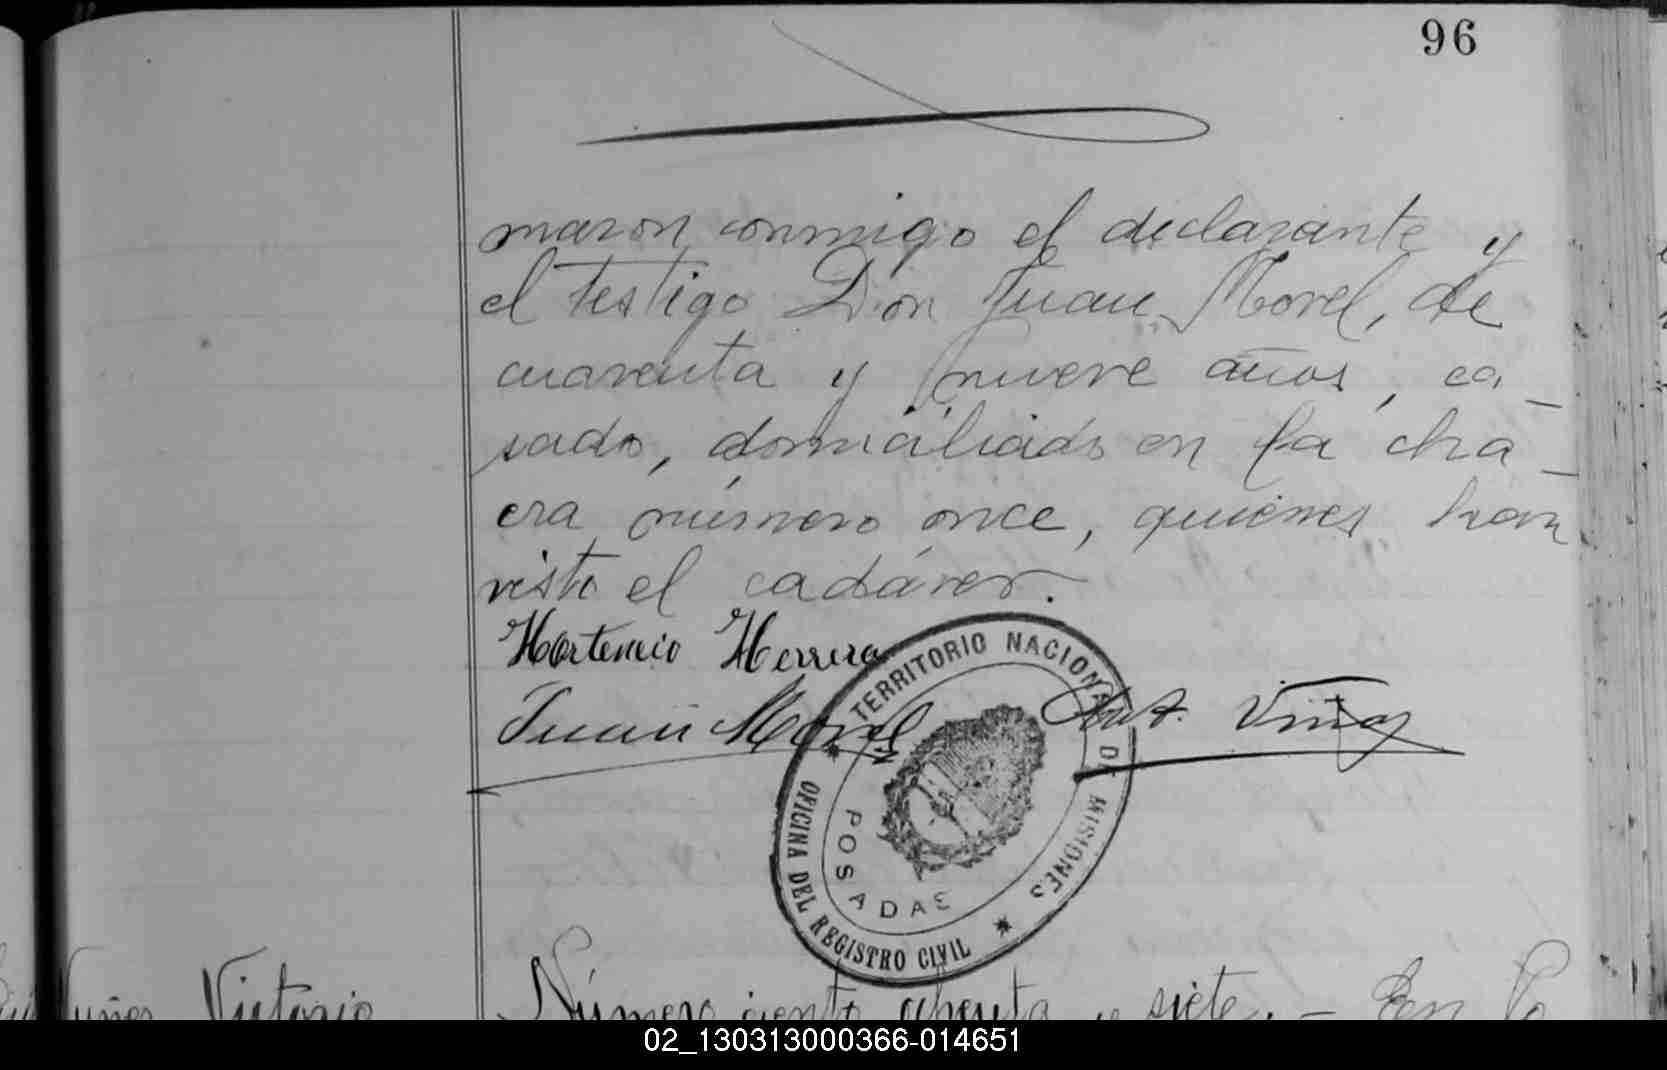 96
maron conmigo el declarante y
el testigo Don Juan Morel, de
cuarenta y nueve años, ca_
sado, domiciliado en la cha_
cra número once, quienes han
visto el cadáver.
Hortencio Herrera
Juan Morel
Ant. Viñas
TERRITORIO NACIONAL DE MISIONES
OFICINA DEL REGISTRO CIVIL
POSADAS
Núñez Victorio
Número ciento ochenta y siete. - En Po
02_130313000366-014651